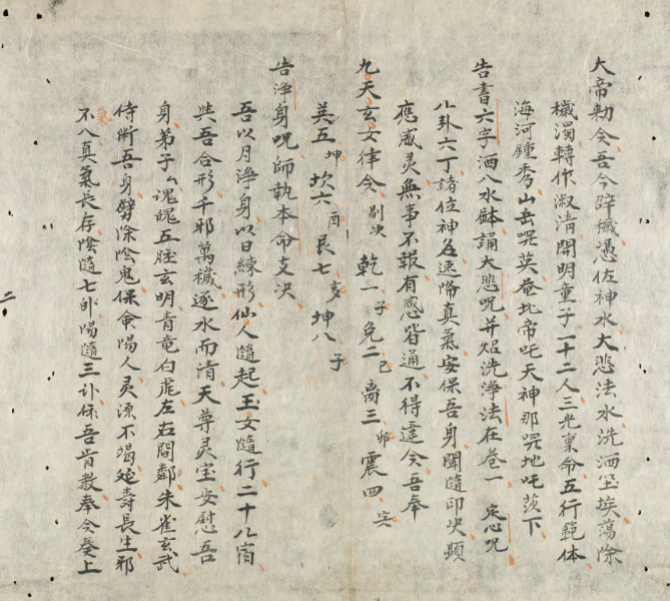 大帝勅令吾今辟穢憑佐神水大悲法水洗洒尘埃蕩除
穢濁轉作淑清開明童子一十二人三光稟命五行範体
海河鍾秀山岳哭英菴北帝吒天神那哭地吒茨下
告書六字洒八水鉢誦大悲咒并炤洗淨法在卷一 定心咒
八卦六丁諸位神名速降真氣安保吾身闔隨印決顯
應感灵無事不報有感皆通不得違令吾奉
九天玄女律令 剔决 乾一 子 免二 己 离三 卯 震四 亥
巽五 坤 坎六 酉 艮七 亥 坤八 子
告淨身咒 師執本命支决
吾以月淨身以日練形仙人隨起玉女隨行二十八宿
與吾合形千邪萬穢逐水而清天尊灵宝安慰吾
身弟子厶魂魄五胜玄明青竜白虎左右間鄰朱雀玄武
侍衛吾身劈除陰鬼保命陽人灵源不竭延壽長生邪
氣
不八真氣長存陰隨七卯陽隨三卦保吾肯教奉令癸上
二